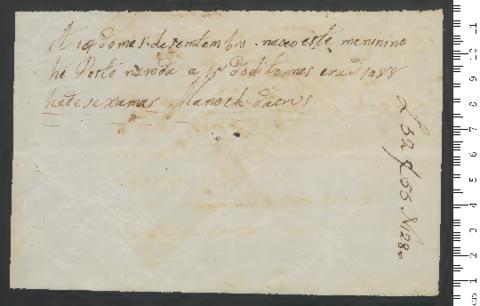 A 19 do mes de sentembro naceo este meninino
he Posté na roda a do dito mes era d 1788
hade se xamar Manoel da crus
L 32 f 55 N 1280